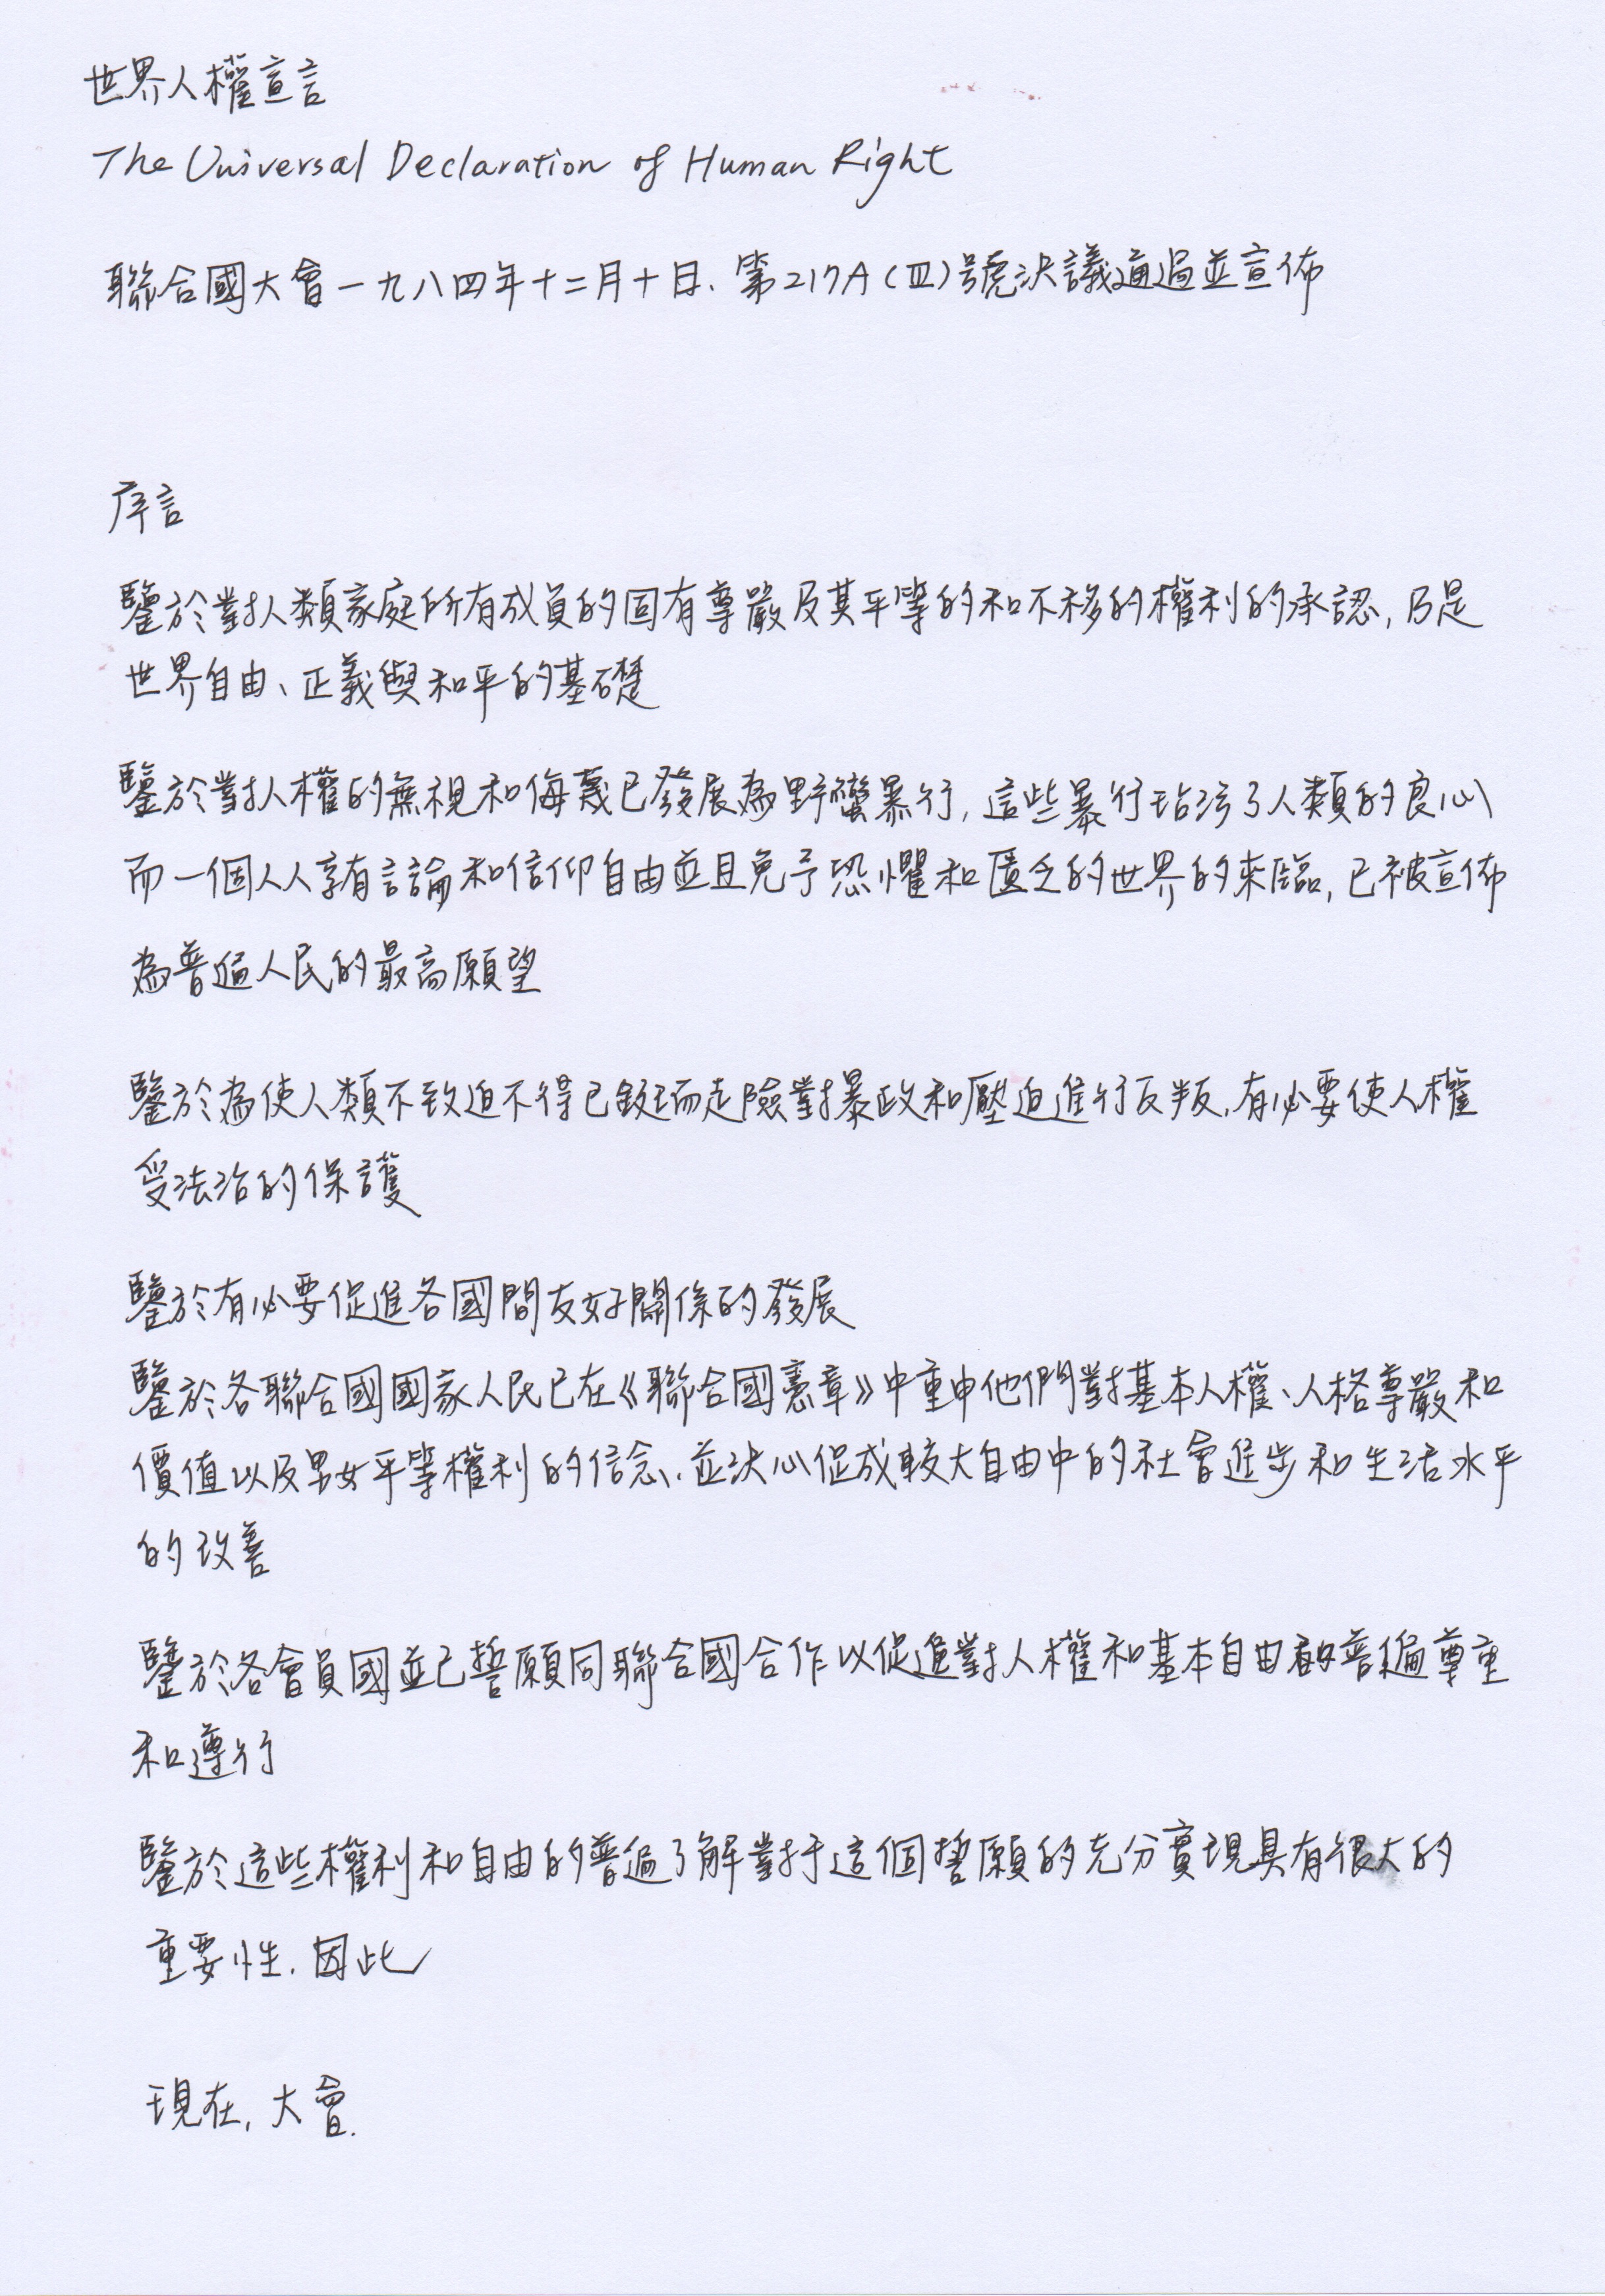 世界人權宣言
The Universal Declaration of Human Right
聯合國大會一九八四年十二月十日. 第217A(Ⅲ)號決議通過並宣佈
序言
鑒於對人類家庭所有成員的固有尊嚴及其平等的和不移的權利的承認, 乃是
世界自由、正義與和平的基礎
鑒於對人權的無視和侮蔑已發展為野蠻暴行, 這些暴行玷污了人類的良心
而一個人人享有言論和信仰自由並且免予恐懼和匱乏的世界的來臨, 已被宣佈
為普遍人民的最高願望
鑒於為使人類不致迫不得已鋌而走險對暴政和壓迫進行反叛, 有必要使人權
受法治的保護
鑒於有必要促進各國間友好關係的發展
鑒於各聯合國國家人民已在《聯合國憲章》中重申他們對基本人權、人格尊嚴和
價值以及男女平等權利的信念, 並決心促成較大自由中的社會進步和生活水平
的改善
鑒於各會員國並已誓願同聯合國合作以促進對人權和基本自由的普遍尊重
和遵行
鑒於這些權利和自由的普遍了解對于這個誓願的充分實現具有很大的
重要性. 因此
現在, 大會.